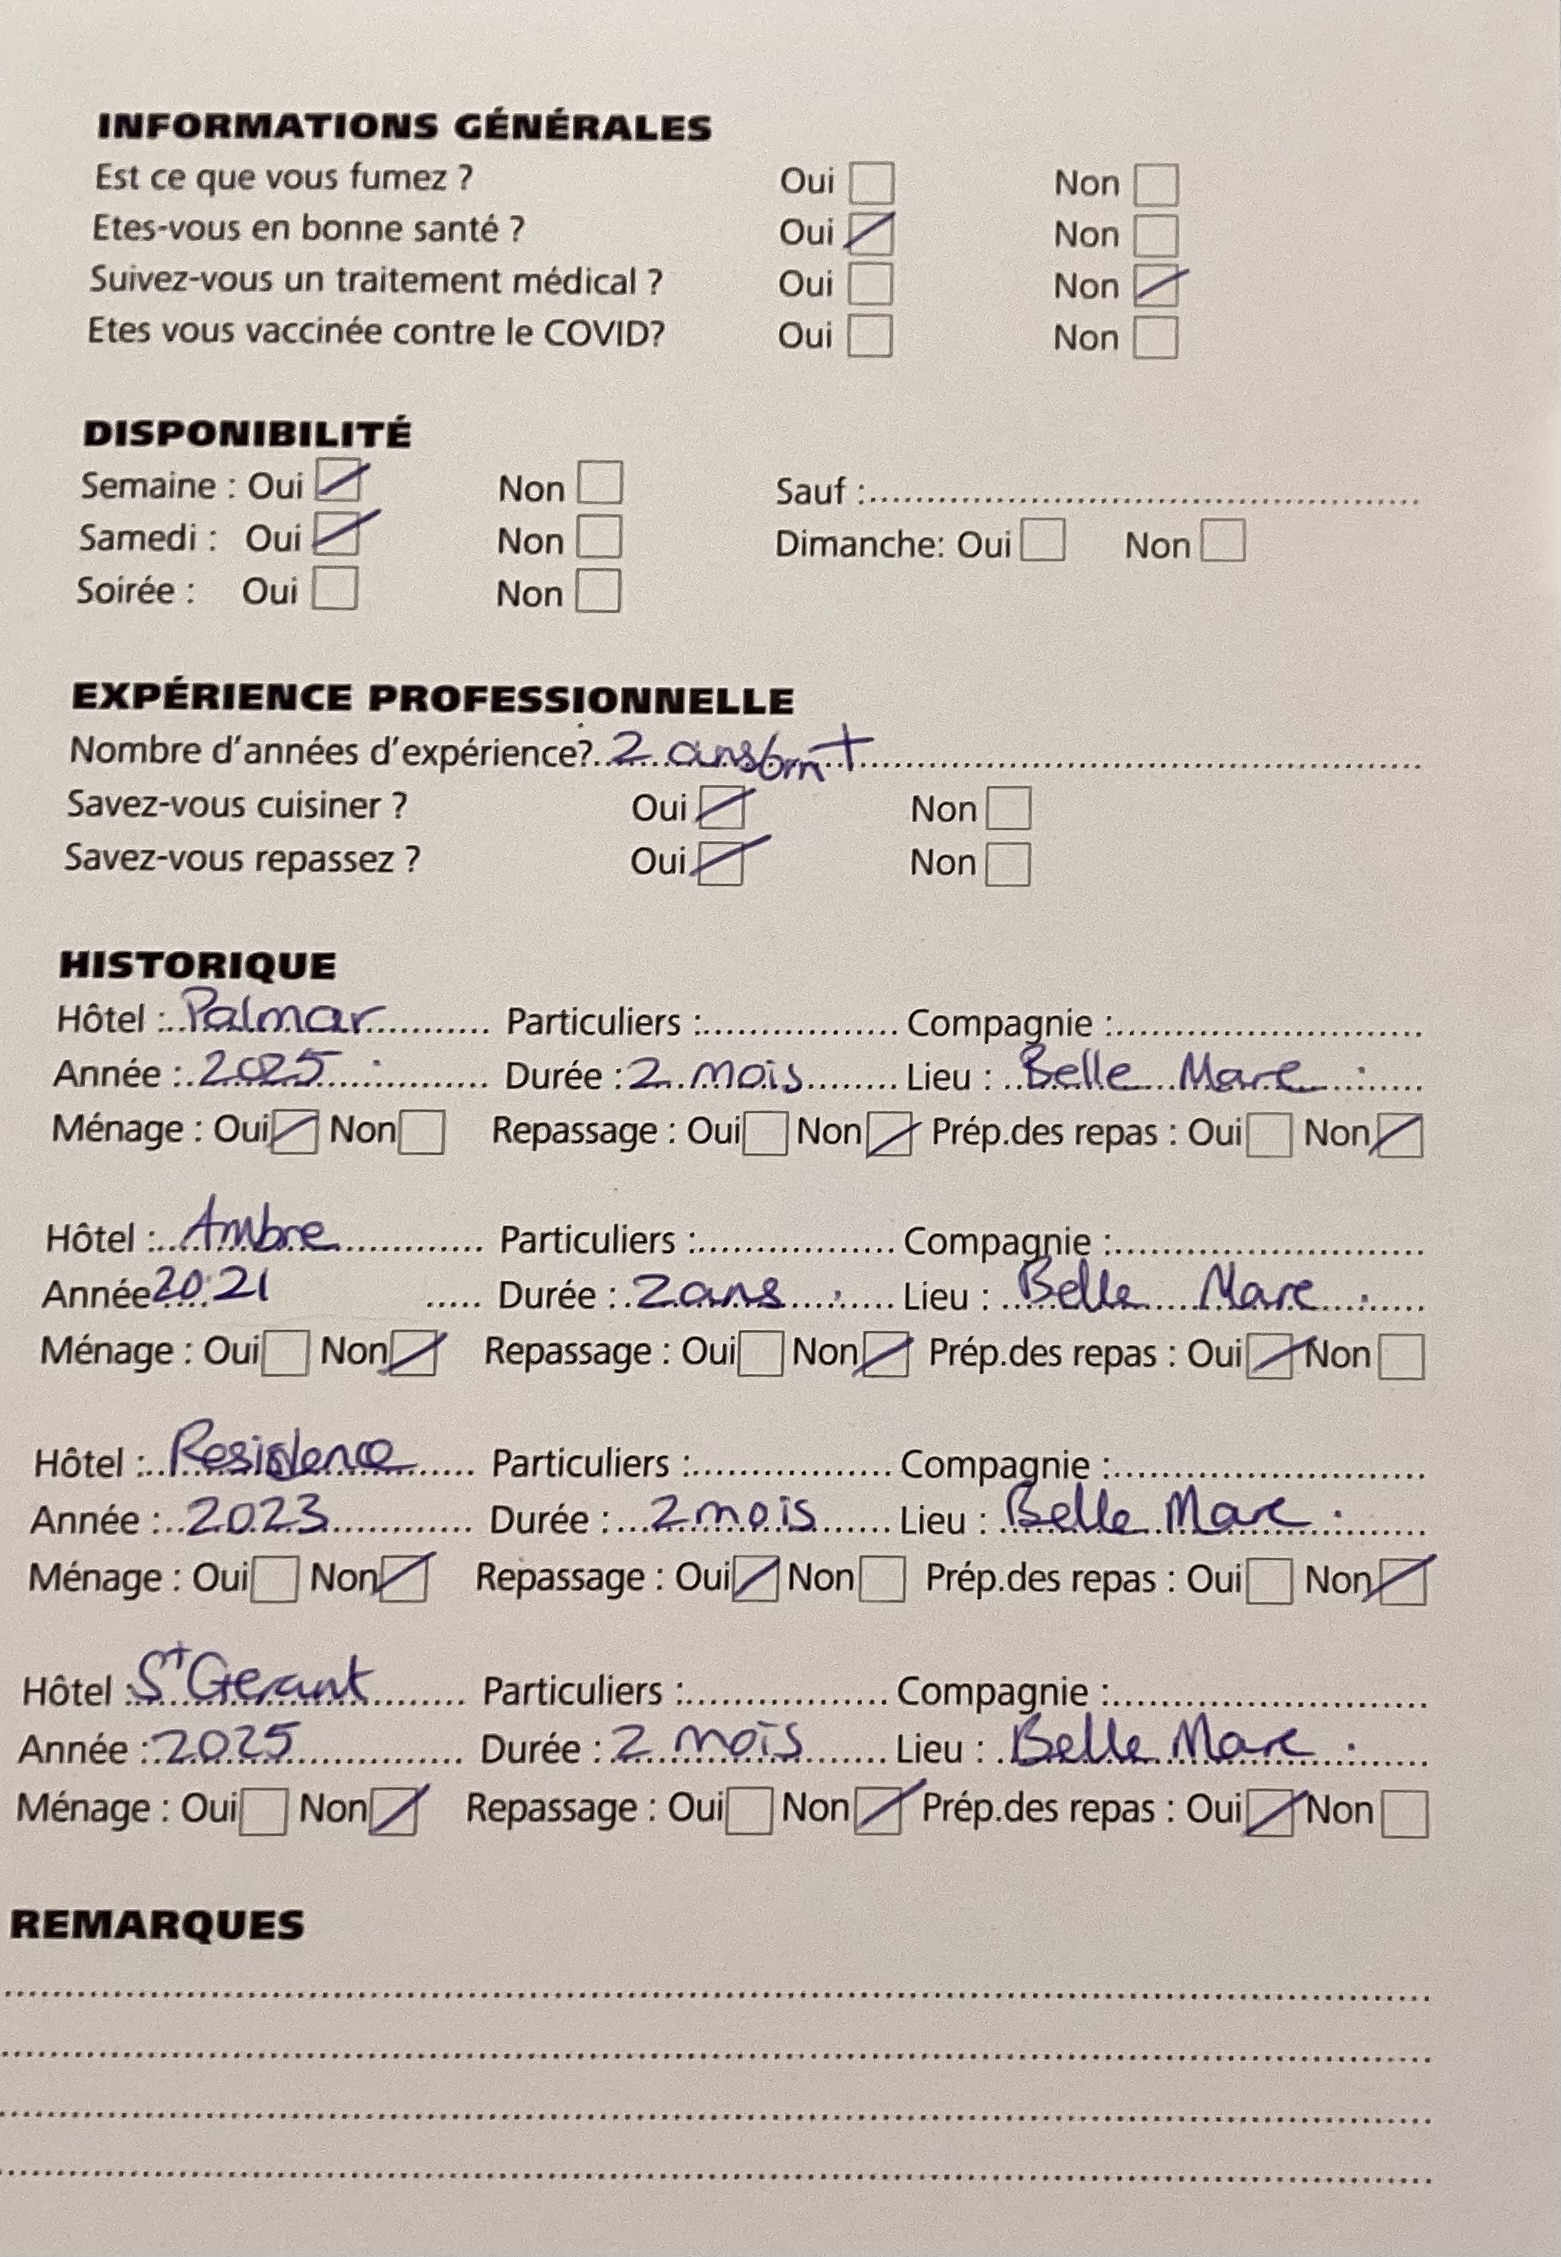 INFORMATIONS GÉNÉRALES
Est ce que vous fumez ? Oui ☐ Non ☐
Etes-vous en bonne santé ? Oui ☑ Non ☐
Suivez-vous un traitement médical ? Oui ☐ Non ☑
Etes vous vaccinée contre le COVID? Oui ☐ Non ☐
DISPONIBILITÉ
Semaine : Oui ☑ Non ☐ Sauf :..............................
Samedi : Oui ☑ Non ☐ Dimanche: Oui ☐ Non ☐
Soirée : Oui ☐ Non ☐
EXPÉRIENCE PROFESSIONNELLE
Nombre d'années d'expérience? 2 ans 6m +
Savez-vous cuisiner ? Oui ☑ Non ☐
Savez-vous repassez ? Oui ☑ Non ☐
HISTORIQUE
Hôtel : Palmar Particuliers :.................. Compagnie :..............................
Année : 2025 Durée : 2 mois Lieu : Belle Mare
Ménage : Oui ☑ Non ☐ Repassage : Oui ☐ Non ☑ Prép.des repas : Oui ☐ Non ☑
Hôtel : Ambre Particuliers :.................. Compagnie :..............................
Année 2021 Durée : 2 ans Lieu : Belle Mare
Ménage : Oui ☐ Non ☑ Repassage : Oui ☐ Non ☑ Prép.des repas : Oui ☑ Non ☐
Hôtel : Residence Particuliers :.................. Compagnie :..............................
Année : 2023 Durée : 2 mois Lieu : Belle Mare
Ménage : Oui ☐ Non ☑ Repassage : Oui ☑ Non ☐ Prép.des repas : Oui ☐ Non ☑
Hôtel : St Gerant Particuliers :.................. Compagnie :..............................
Année : 2025 Durée : 2 mois Lieu : Belle Mare
Ménage : Oui ☐ Non ☑ Repassage : Oui ☐ Non ☑ Prép.des repas : Oui ☑ Non ☐
REMARQUES